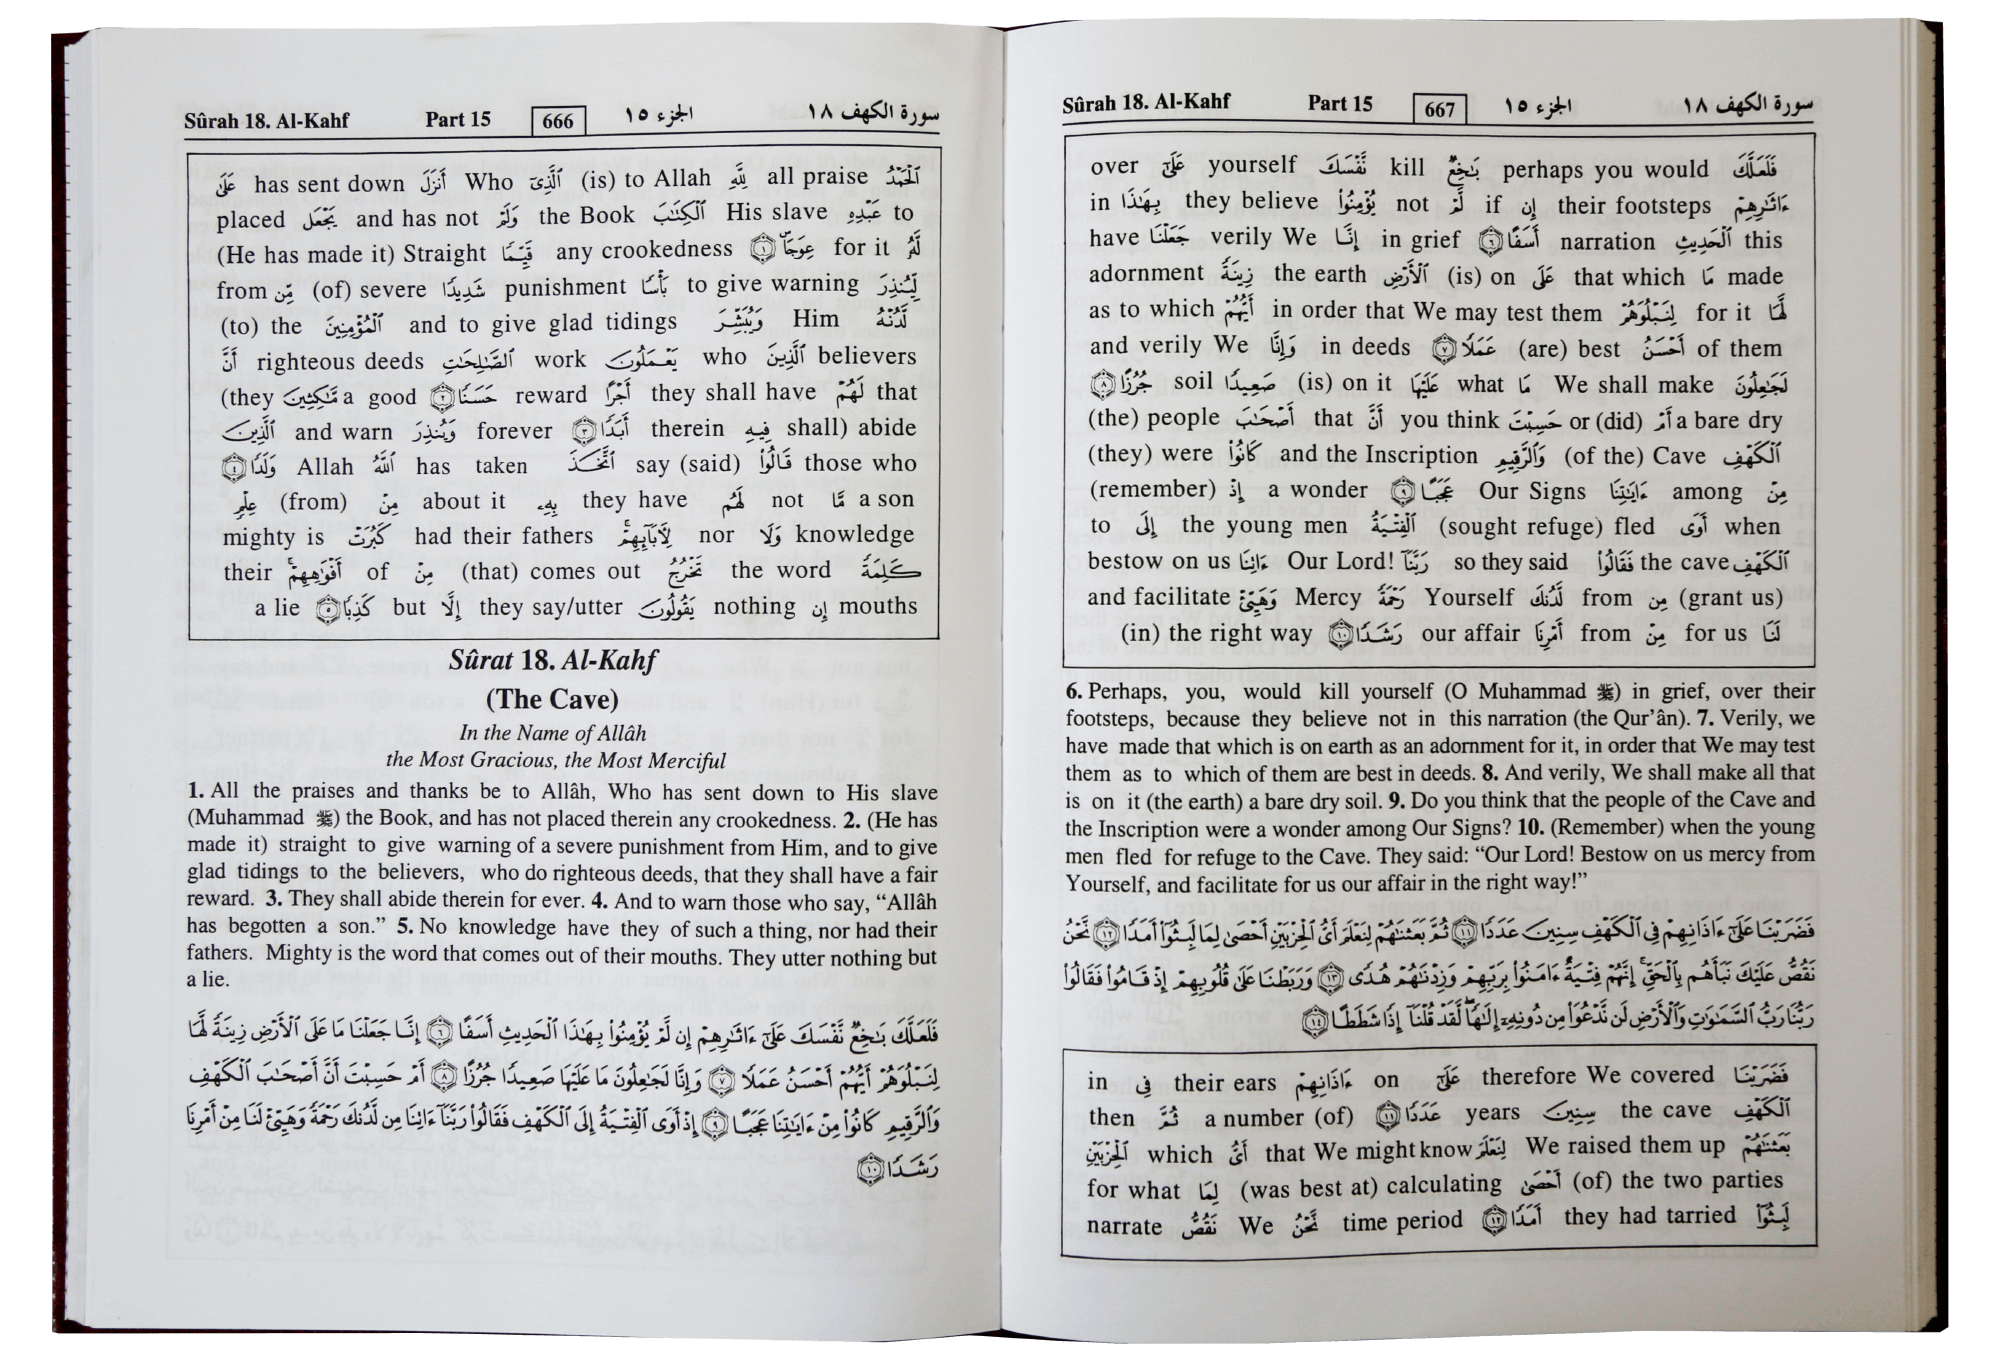 Sûrah 18. Al-Kahf Part 15 666 الجزء ١٥ سورة الكهف ١٨
ٱلْحَمْدُ all praise لِلَّهِ (is) to Allah ٱلَّذِىٓ Who أَنزَلَ has sent down عَلَىٰ
to عَبْدِهِ His slave ٱلْكِتَٰبَ the Book وَلَمْ and has not يَجْعَل placed
لَّهُۥ for it عِوَجَاۜ ١ any crookedness قَيِّمًا (He has made it) Straight
لِّيُنذِرَ to give warning بَأْسًا punishment شَدِيدًا (of) severe مِّن from
لَّدُنْهُ Him وَيُبَشِّرَ and to give glad tidings ٱلْمُؤْمِنِينَ (to) the
believers ٱلَّذِينَ who يَعْمَلُونَ work ٱلصَّٰلِحَٰتِ righteous deeds أَنَّ
that لَهُمْ they shall have أَجْرًا reward حَسَنًا ٢ a good مَّٰكِثِينَ (they
shall) abide فِيهِ therein أَبَدًا ٣ forever وَيُنذِرَ and warn ٱلَّذِينَ
those who قَالُوا۟ say (said) ٱتَّخَذَ has taken ٱللَّهُ Allah وَلَدًا ٤
a son مَّا not لَهُم they have بِهِۦ about it مِنْ (from) عِلْمٍ
knowledge وَلَا nor لِءَابَآئِهِمْ had their fathers كَبُرَتْ mighty is
كَلِمَةً the word تَخْرُجُ (that) comes out مِنْ of أَفْوَٰهِهِمْ their
mouths إِن nothing يَقُولُونَ they say/utter إِلَّا but كَذِبًا ٥ a lie
Sûrat 18. Al-Kahf
(The Cave)
In the Name of Allâh
the Most Gracious, the Most Merciful
1. All the praises and thanks be to Allâh, Who has sent down to His slave
(Muhammad ﷺ) the Book, and has not placed therein any crookedness. 2. (He has
made it) straight to give warning of a severe punishment from Him, and to give
glad tidings to the believers, who do righteous deeds, that they shall have a fair
reward. 3. They shall abide therein for ever. 4. And to warn those who say, “Allâh
has begotten a son.” 5. No knowledge have they of such a thing, nor had their
fathers. Mighty is the word that comes out of their mouths. They utter nothing but
a lie.
فَلَعَلَّكَ بَٰخِعٌ نَّفْسَكَ عَلَىٰٓ ءَاثَٰرِهِمْ إِن لَّمْ يُؤْمِنُوا۟ بِهَٰذَا ٱلْحَدِيثِ أَسَفًا ٦ إِنَّا جَعَلْنَا مَا عَلَى ٱلْأَرْضِ زِينَةً لَّهَا
لِنَبْلُوَهُمْ أَيُّهُمْ أَحْسَنُ عَمَلًا ٧ وَإِنَّا لَجَٰعِلُونَ مَا عَلَيْهَا صَعِيدًا جُرُزًا ٨ أَمْ حَسِبْتَ أَنَّ أَصْحَٰبَ ٱلْكَهْفِ
وَٱلرَّقِيمِ كَانُوا۟ مِنْ ءَايَٰتِنَا عَجَبًا ٩ إِذْ أَوَى ٱلْفِتْيَةُ إِلَى ٱلْكَهْفِ فَقَالُوا۟ رَبَّنَآ ءَاتِنَا مِن لَّدُنكَ رَحْمَةً وَهَيِّئْ لَنَا مِنْ أَمْرِنَا
رَشَدًا ١٠
Sûrah 18. Al-Kahf Part 15 667 الجزء ١٥ سورة الكهف ١٨
فَلَعَلَّكَ perhaps you would بَٰخِعٌ kill نَّفْسَكَ yourself عَلَىٰٓ over
ءَاثَٰرِهِمْ their footsteps إِن if لَّمْ not يُؤْمِنُوا۟ they believe بِهَٰذَا in
this ٱلْحَدِيثِ narration أَسَفًا ٦ in grief إِنَّا verily We جَعَلْنَا have
made مَا that which عَلَى (is) on ٱلْأَرْضِ the earth زِينَةً adornment
لَّهَا for it لِنَبْلُوَهُمْ in order that We may test them أَيُّهُمْ as to which
of them أَحْسَنُ (are) best عَمَلًا ٧ in deeds وَإِنَّا and verily We
لَجَٰعِلُونَ We shall make مَا what عَلَيْهَا (is) on it صَعِيدًا soil جُرُزًا ٨
a bare dry أَمْ or (did) حَسِبْتَ you think أَنَّ that أَصْحَٰبَ (the) people
ٱلْكَهْفِ (of the) Cave وَٱلرَّقِيمِ and the Inscription كَانُوا۟ (they) were
مِنْ among ءَايَٰتِنَا Our Signs عَجَبًا ٩ a wonder إِذْ (remember)
when أَوَى (sought refuge) fled ٱلْفِتْيَةُ the young men إِلَى to
ٱلْكَهْفِ the cave فَقَالُوا۟ so they said رَبَّنَآ Our Lord! ءَاتِنَا bestow on us
(grant us) مِن from لَّدُنكَ Yourself رَحْمَةً Mercy وَهَيِّئْ and facilitate
لَنَا for us مِنْ from أَمْرِنَا our affair رَشَدًا ١٠ (in) the right way
6. Perhaps, you, would kill yourself (O Muhammad ﷺ) in grief, over their
footsteps, because they believe not in this narration (the Qur’ân). 7. Verily, we
have made that which is on earth as an adornment for it, in order that We may test
them as to which of them are best in deeds. 8. And verily, We shall make all that
is on it (the earth) a bare dry soil. 9. Do you think that the people of the Cave and
the Inscription were a wonder among Our Signs? 10. (Remember) when the young
men fled for refuge to the Cave. They said: “Our Lord! Bestow on us mercy from
Yourself, and facilitate for us our affair in the right way!”
فَضَرَبْنَا عَلَىٰٓ ءَاذَانِهِمْ فِى ٱلْكَهْفِ سِنِينَ عَدَدًا ١١ ثُمَّ بَعَثْنَٰهُمْ لِنَعْلَمَ أَىُّ ٱلْحِزْبَيْنِ أَحْصَىٰ لِمَا لَبِثُوٓا۟ أَمَدًا ١٢ نَّحْنُ
نَقُصُّ عَلَيْكَ نَبَأَهُم بِٱلْحَقِّ إِنَّهُمْ فِتْيَةٌ ءَامَنُوا۟ بِرَبِّهِمْ وَزِدْنَٰهُمْ هُدًى ١٣ وَرَبَطْنَا عَلَىٰ قُلُوبِهِمْ إِذْ قَامُوا۟ فَقَالُوا۟
رَبُّنَا رَبُّ ٱلسَّمَٰوَٰتِ وَٱلْأَرْضِ لَن نَّدْعُوَا۟ مِن دُونِهِۦٓ إِلَٰهًا لَّقَدْ قُلْنَآ إِذًا شَطَطًا ١٤
فَضَرَبْنَا therefore We covered عَلَىٰٓ on ءَاذَانِهِمْ their ears فِى in
ٱلْكَهْفِ the cave سِنِينَ years عَدَدًا ١١ a number (of) ثُمَّ then
بَعَثْنَٰهُمْ We raised them up لِنَعْلَمَ that We might know أَىُّ which ٱلْحِزْبَيْنِ
(of) the two parties أَحْصَىٰ (was best at) calculating لِمَا for what
لَبِثُوٓا۟ they had tarried أَمَدًا ١٢ time period نَّحْنُ We نَقُصُّ narrate